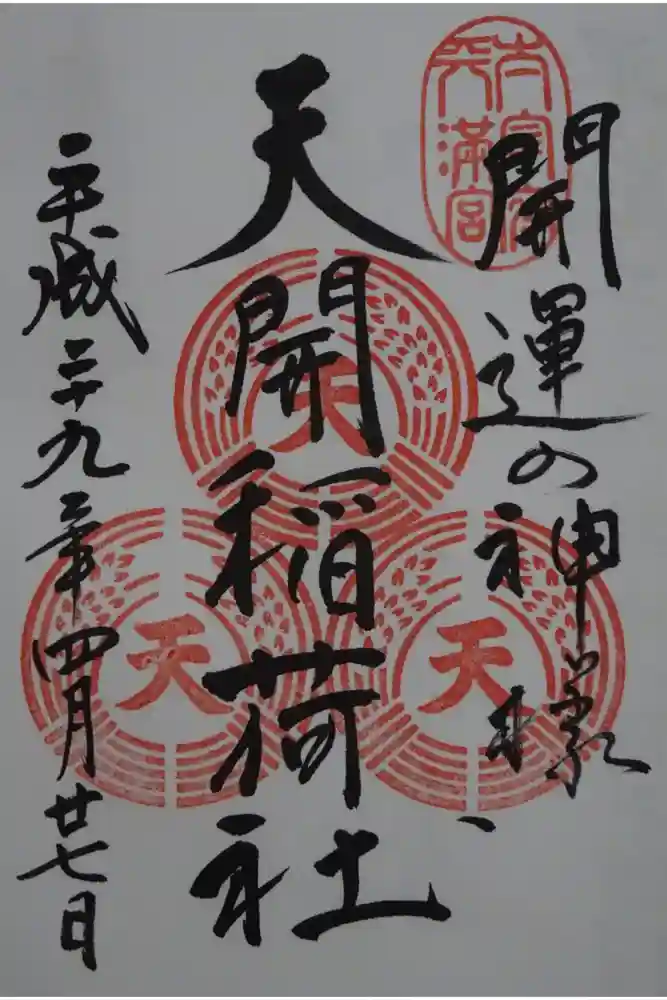 開運の神様
太宰府
天満宮
天開稲荷社
天
天
天
平成二十九年四月廿七日